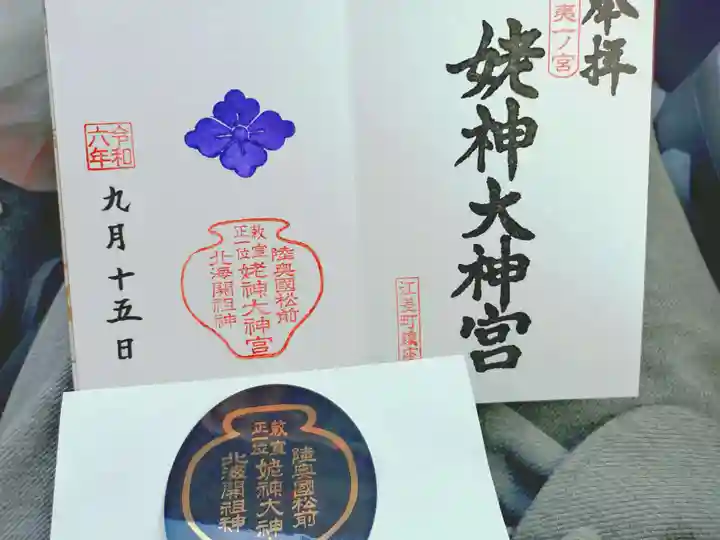 奉拝
夷一ノ宮
姥神大神宮
江差町鎮座
令和
六年
九月十五日
陸奥國松前
敕宣
正一位
姥神大神宮
北海開祖神
陸奥國松前
敕宣
正一位
姥神大神
北海開祖神